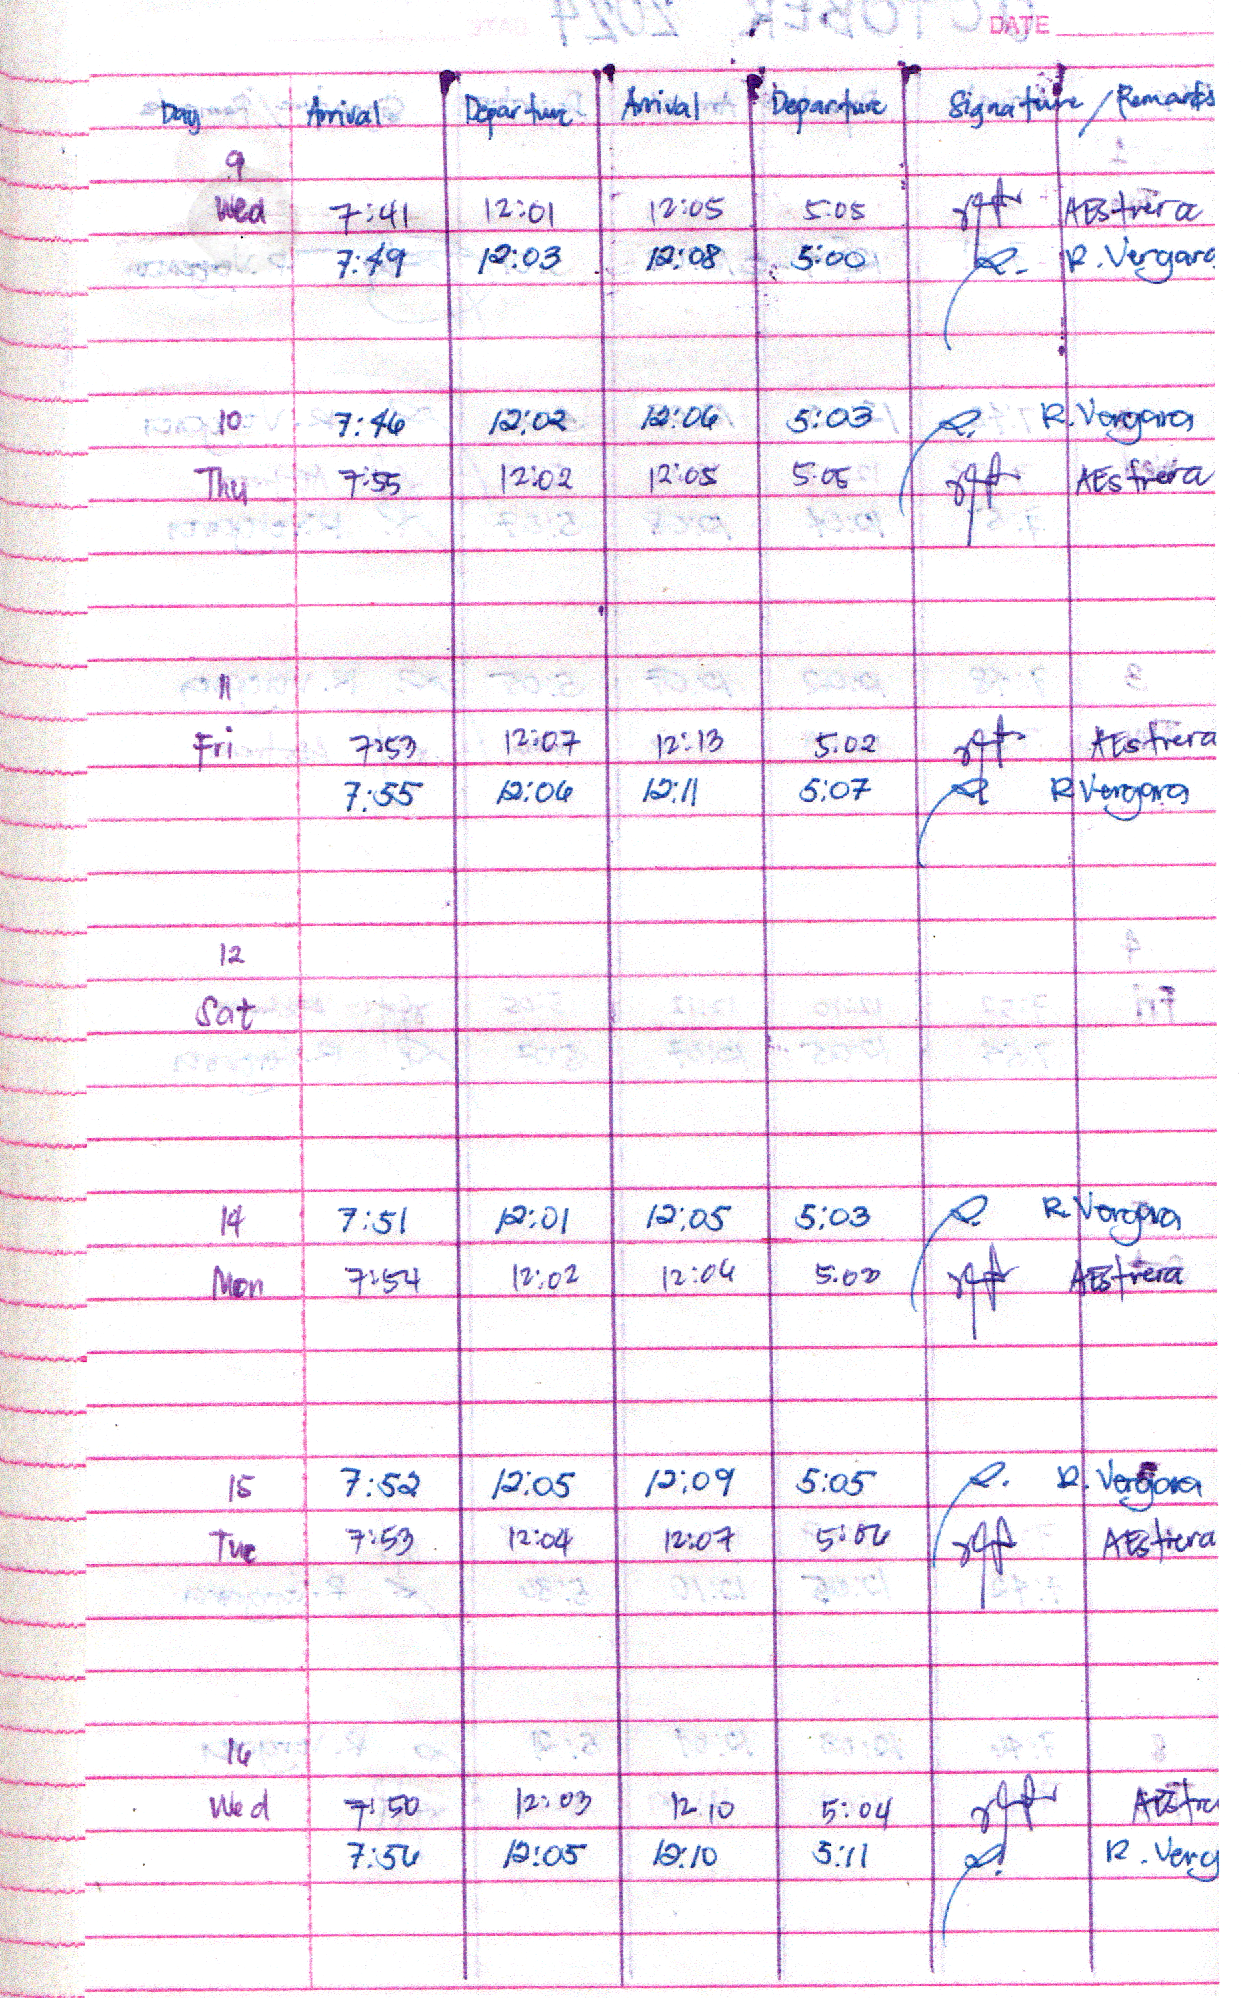 DATE
Day Arrival Departure Arrival Departure Signature / Remarks
9
Wed 7:41 12:01 12:05 5:05 AEstrera
7:49 12:03 12:08 5:00 R. Vergara
10 7:46 12:02 12:06 5:03 R. Vergara
Thu 7:55 12:02 12:05 5:05 AEstrera
11
Fri 7:53 12:07 12:13 5:02 AEstrera
7:55 12:06 12:11 5:07 R Vergara
12
Sat
14 7:51 12:01 12:05 5:03 R Vergara
Mon 7:54 12:02 12:06 5:00 AEstrera
15 7:52 12:05 12:09 5:05 R. Vergara
Tue 7:53 12:04 12:07 5:06 AEstrera
16
Wed 7:50 12:03 12 10 5:04 AEstre
7:56 12:05 12:10 5:11 R. Verg